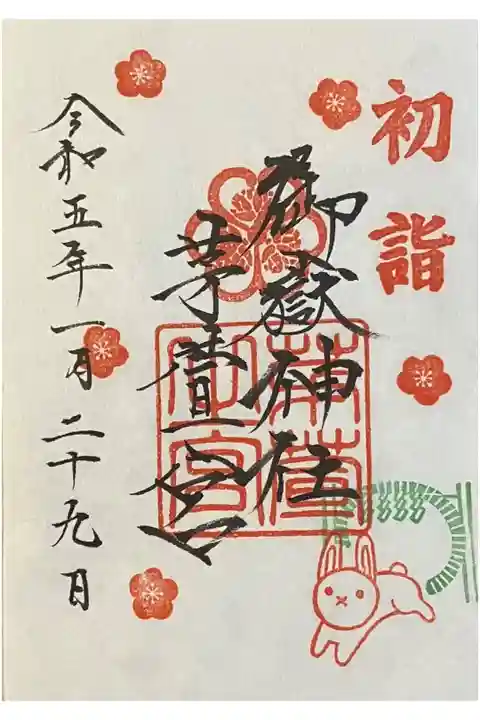 初詣
御嶽神社
茅萱宮
令和五年一月二十九日